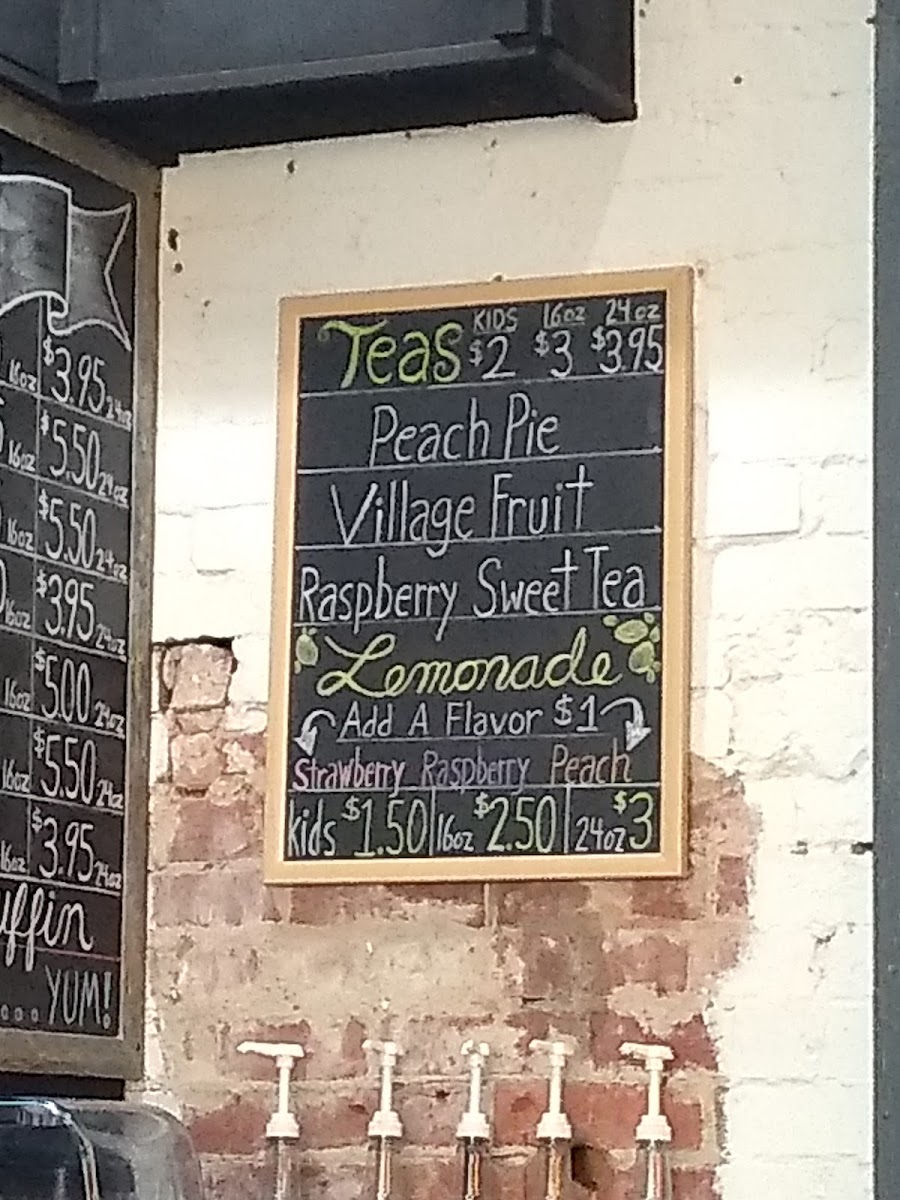 $3.95 24oz
16oz $5.50 24oz
16oz $5.50 24oz
16oz $3.95 24oz
16oz $5.00 24oz
16oz $5.50 24oz
16oz $3.95 24oz
uffin
....YUM!
KIDS 16oz 24oz
Teas $2 $3 $3.95
Peach Pie
Village Fruit
Raspberry Sweet Tea
Lemonade
Add A Flavor $1
Strawberry Raspberry Peach
kids $1.50 16oz $2.50 24oz $3